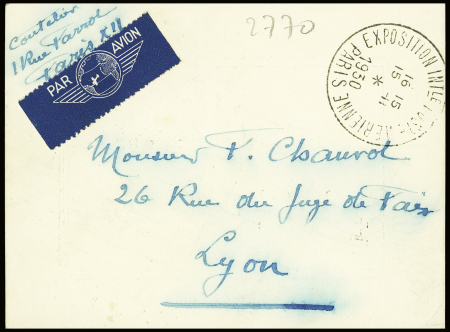 Coutelier
1 Rue Parrot
Paris XII
PAR AVION
2770
EXPOSITION INTLE POSTE AERIENNE
PARIS
1930
*
16 15 -11
15
Monsieur F. Chauvot
26 Rue du Juge de Paix
Lyon